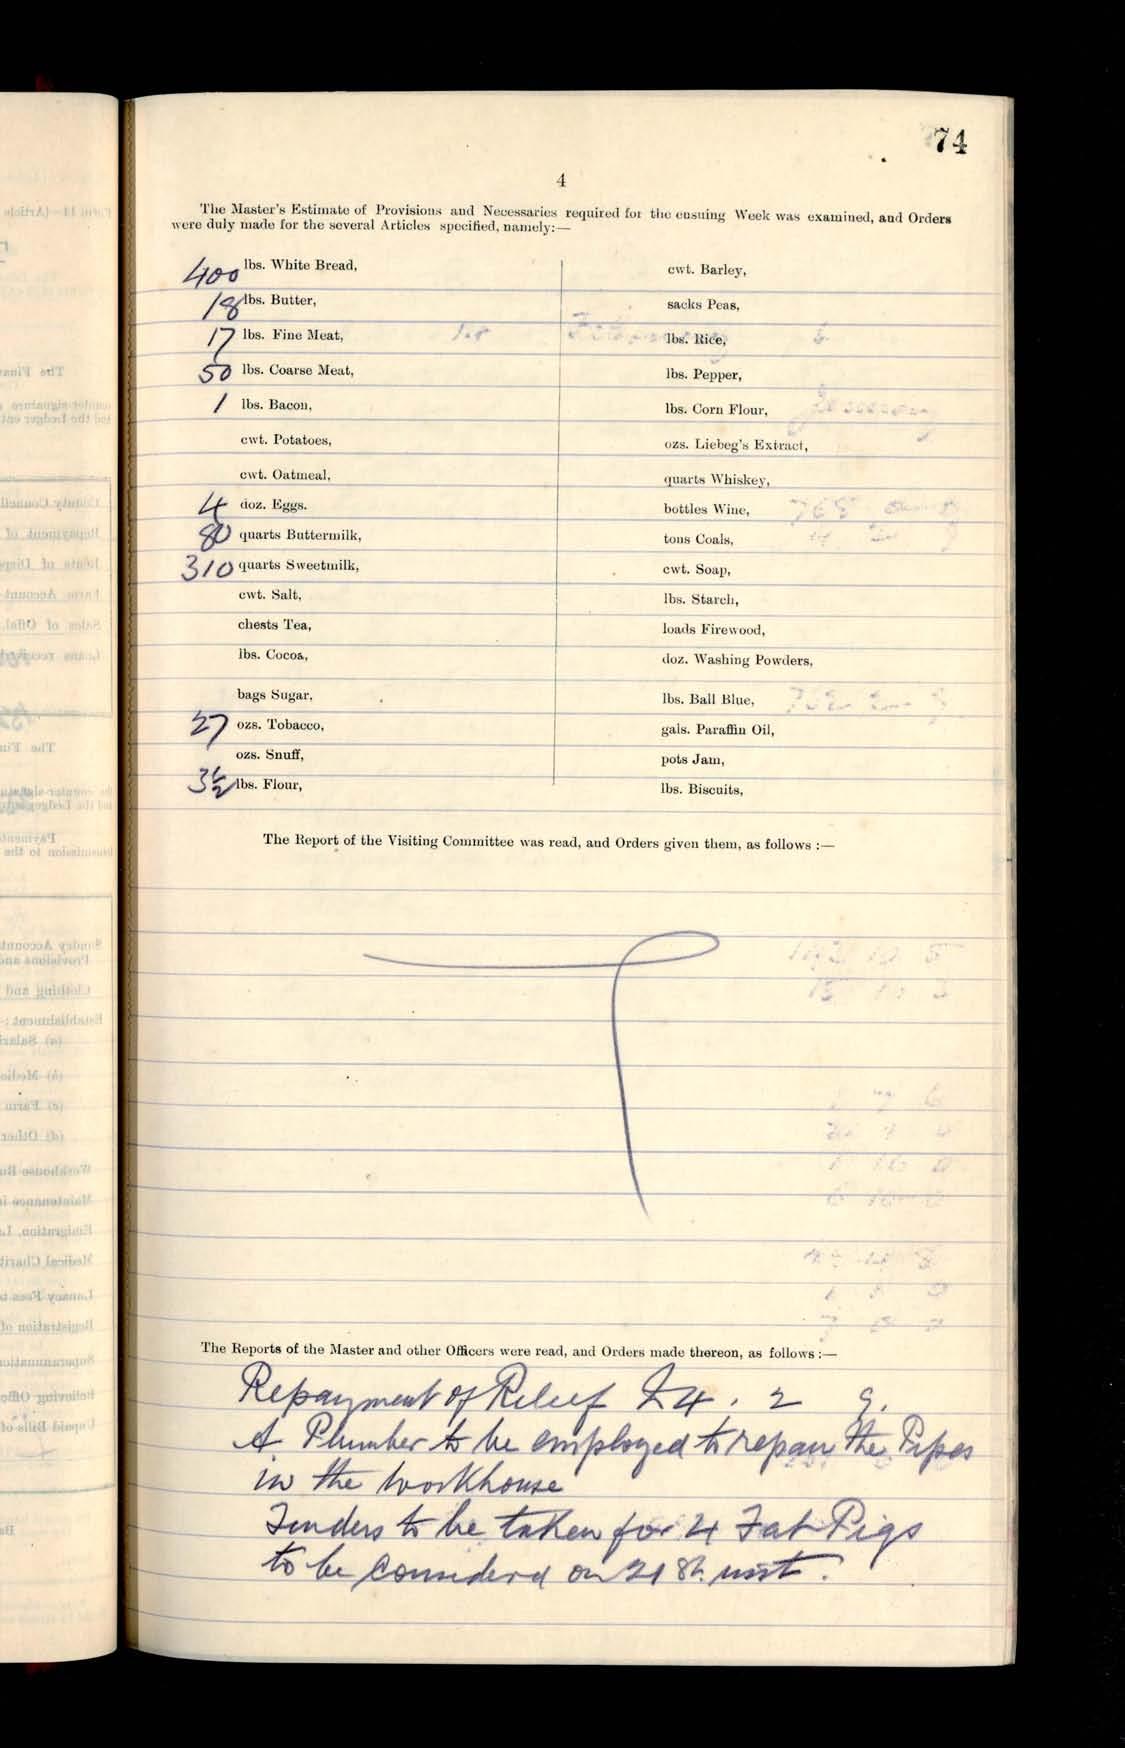 74
4
The Master's Estimate of Provisions and Necessaries required for the ensuing Week was examined, and Orders
were duly made for the several Articles specified, namely:—
400 lbs. White Bread,
18 lbs. Butter,
17 lbs. Fine Meat,
50 lbs. Coarse Meat,
1 lbs. Bacon,
cwt. Potatoes,
cwt. Oatmeal,
4 doz. Eggs.
80 quarts Buttermilk,
310 quarts Sweetmilk,
cwt. Salt,
chests Tea,
lbs. Cocoa,
bags Sugar,
27 ozs. Tobacco,
ozs. Snuff,
3½ lbs. Flour,
cwt. Barley,
sacks Peas,
lbs. Rice,
lbs. Pepper,
lbs. Corn Flour,
ozs. Liebeg's Extract,
quarts Whiskey,
bottles Wine,
tons Coals,
cwt. Soap,
lbs. Starch,
loads Firewood,
doz. Washing Powders,
lbs. Ball Blue,
gals. Paraffin Oil,
pots Jam,
lbs. Biscuits,
The Report of the Visiting Committee was read, and Orders given them, as follows :—
The Reports of the Master and other Officers were read, and Orders made thereon, as follows :—
Repayment of Relief £4 . 2 9.
A Plumber to be employed to repair the Pipes
in the Workhouse
Tenders to be taken for 4 Fat Pigs
to be considered on 21st.